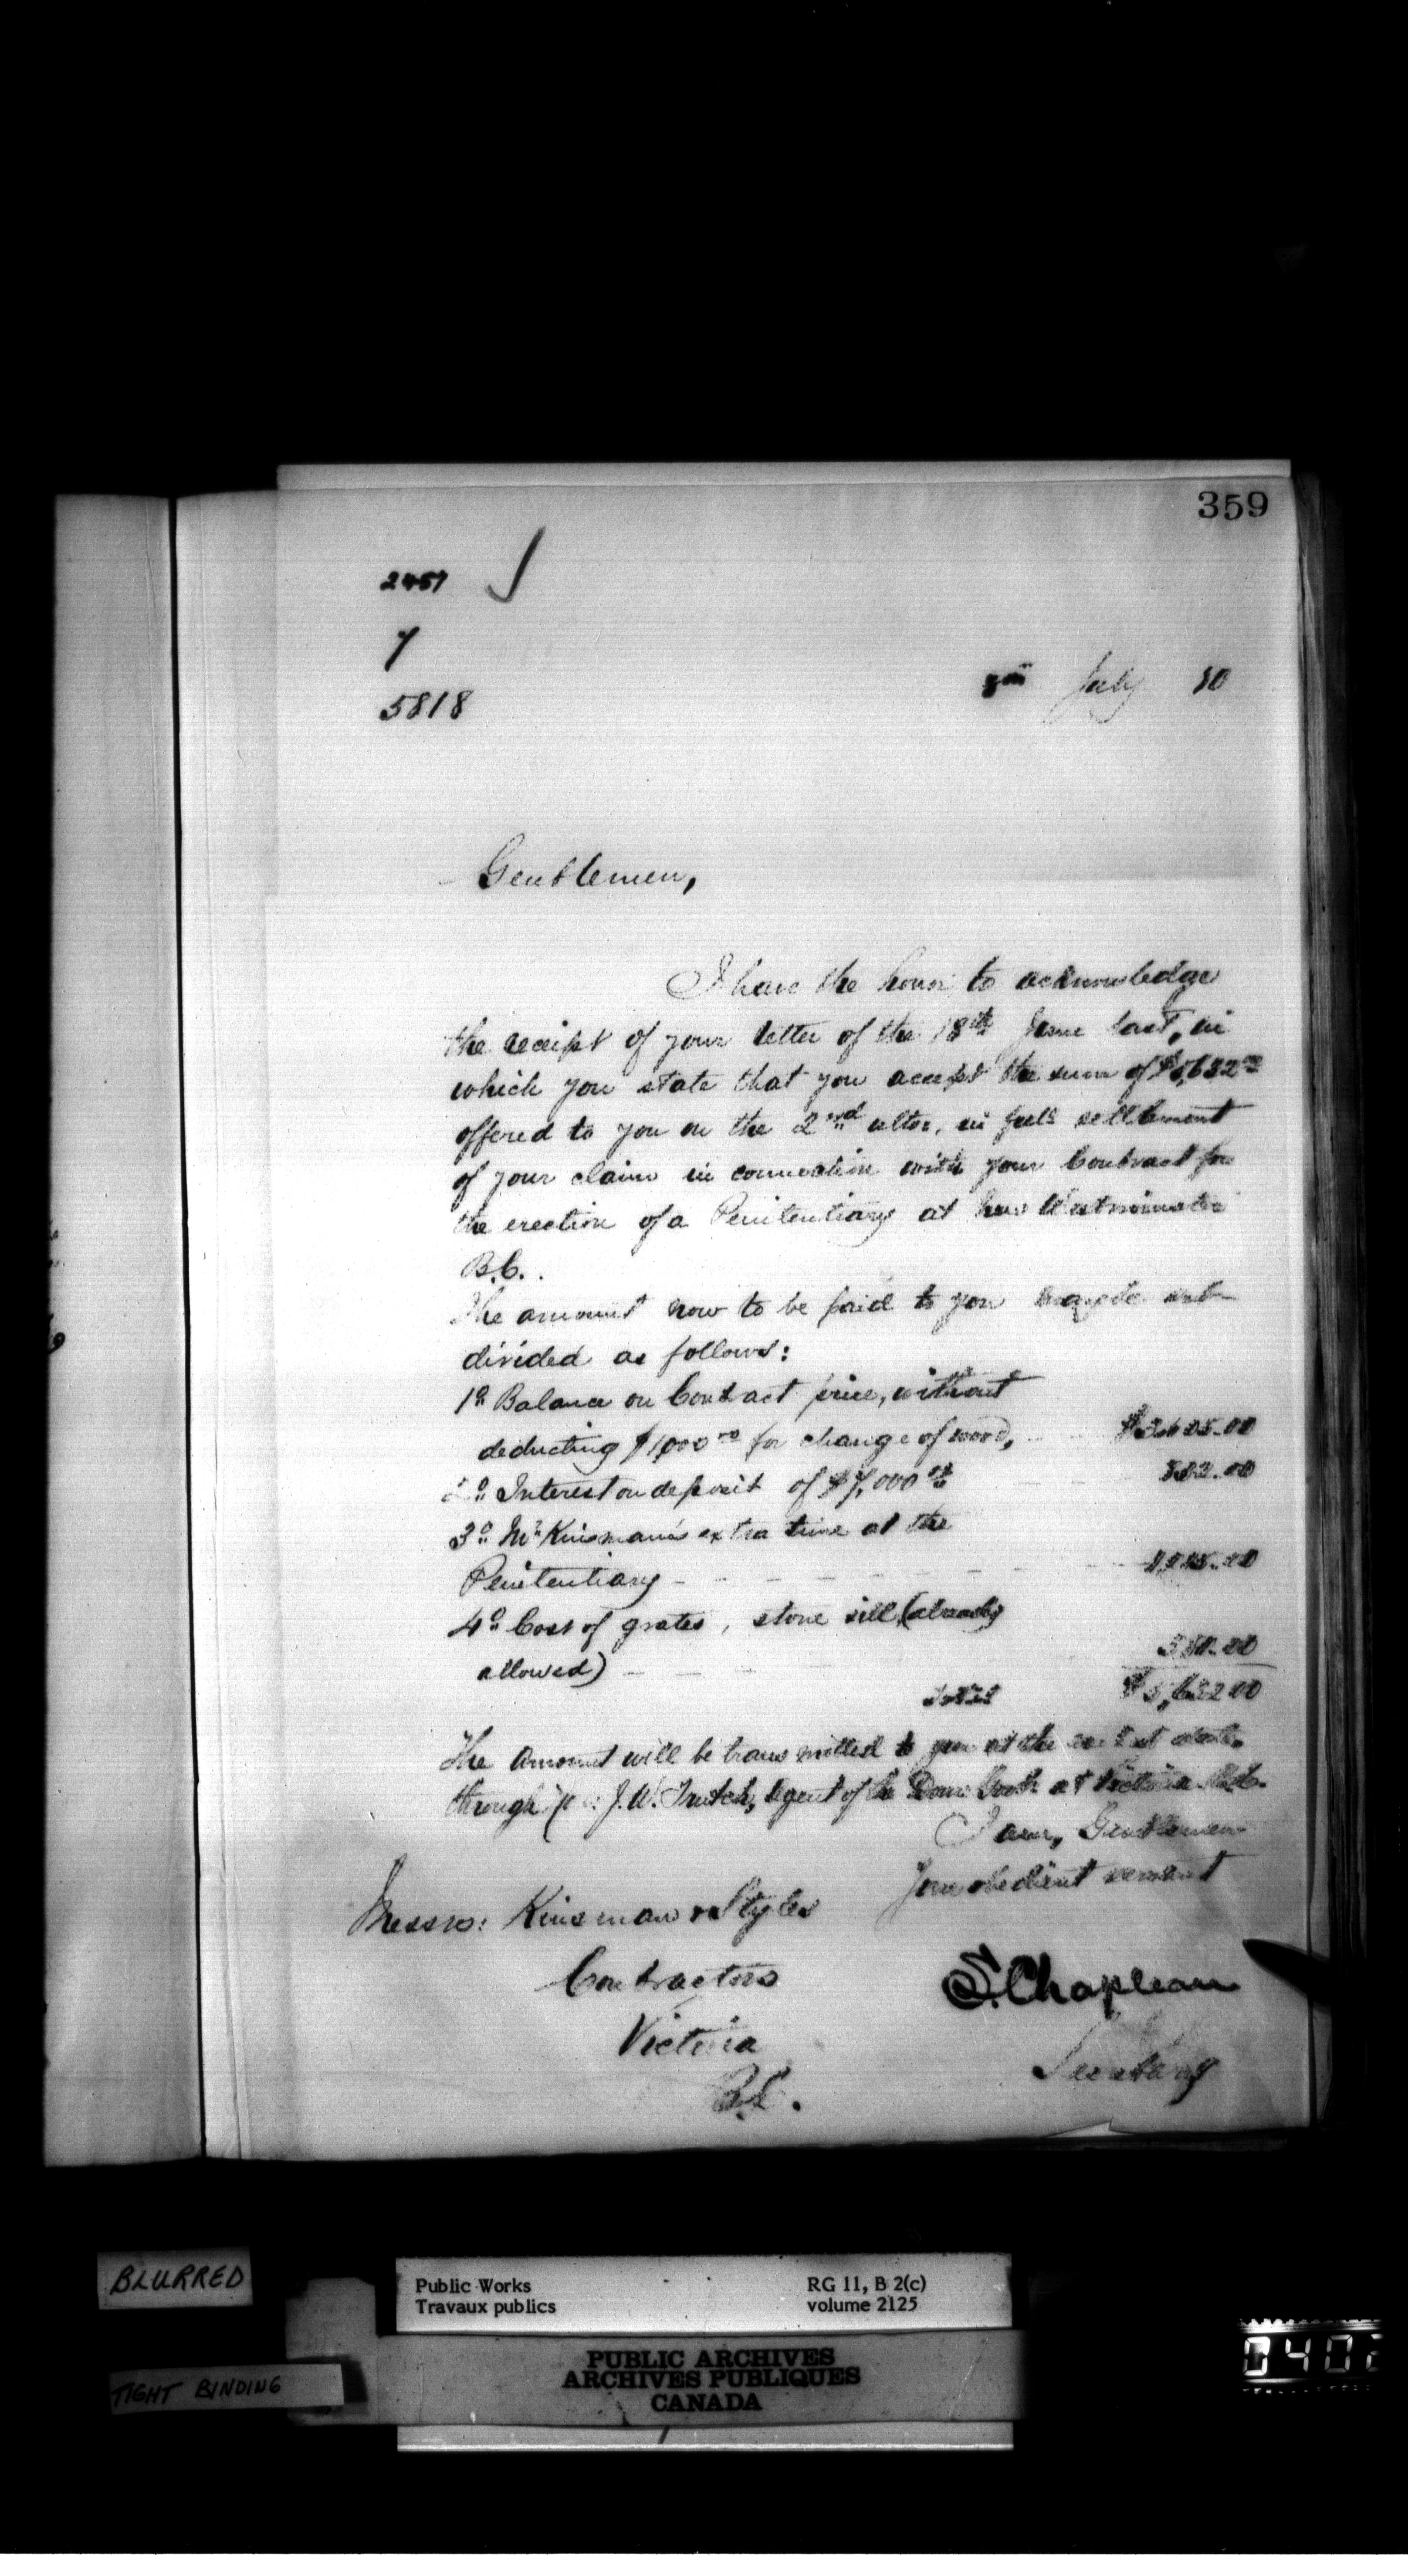 359
2457
7
5818
July 80
Gentlemen,
I have the honor to acknowledge
the receipt of your letter of the 18th June last, in
which you state that you accept the sum of $5,632.00
offered to you on the 2nd ulto, in full settlement
of your claim in connection with your Contract for
the erection of a Penitentiary at New Westminster
B.C.
The amount now to be paid to you may be sub-
divided as follows:
1o Balance on Contract price, without
deducting $1,000.00 for change of wood,
2o Interest on deposit of $7,000.00
3o Mr Kinsman's extra time at the
Penitentiary
4o Cost of grates, stone sill (already
allowed)
Total $5,632.00
The Amount will be transmitted to you at the date
through J. W. Trutch, Agent of the Dom. Govt. at Victoria
I am, Gentlemen
Your obedient servant
Messrs: Kinsman & Styles
Contractors
Victoria
B.C.
S. Chapleau
Secretary
BLURRED
TIGHT BINDING
Public Works RG 11, B 2(c)
Travaux publics volume 2125
PUBLIC ARCHIVES
ARCHIVES PUBLIQUES
CANADA
0402